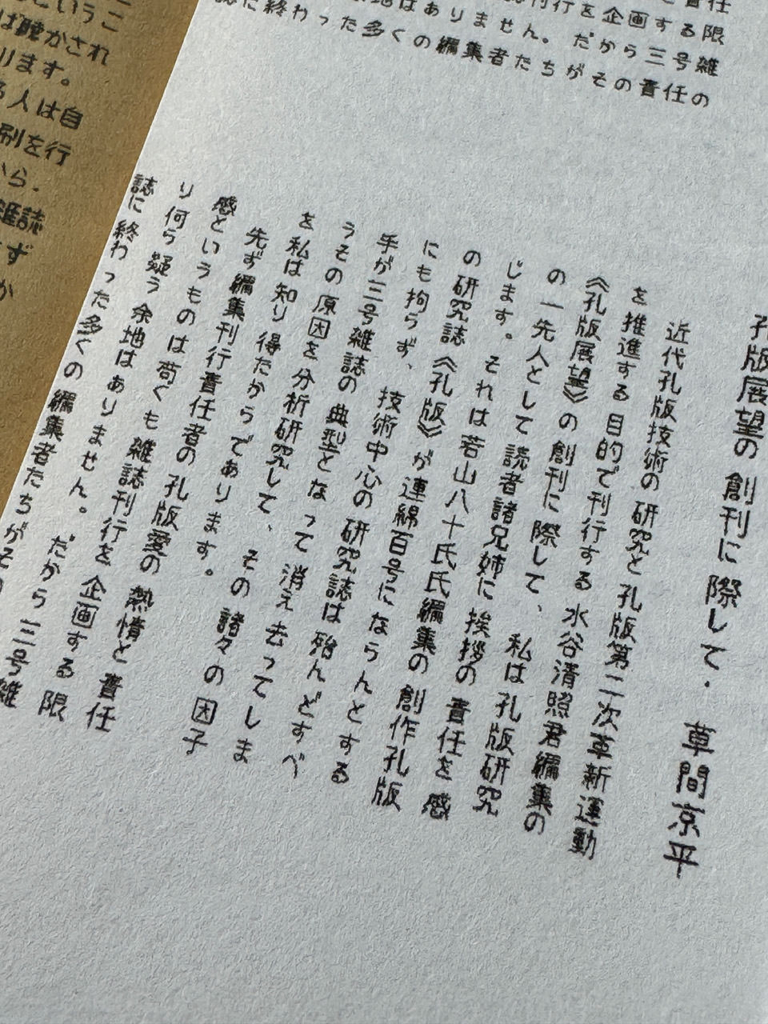 孔版展望の創刊に際して・ 草間京平
近代孔版技術の研究と孔版第二次革新運動
を推進する目的で刊行する水谷清照君編集の
《孔版展望》の創刊に際して、私は孔版研究
の一先人として読者諸兄姉に挨拶の責任を感
じます。それは若山八十氏氏編集の創作孔版
の研究誌《孔版》が連綿百号にならんとする
にも拘らず、技術中心の研究誌は殆んどすべ
手が三号雑誌の典型となって消え去ってしま
うその原因を分析研究して、その諸々の因子
を私は知り得たからであります。
先ず編集刊行責任者の孔版愛の熱情と責任
感というものは苟くも雑誌刊行を企画する限
り何ら疑う余地はありません。だから三号雑
誌に終わった多くの編集者たちがその
刊行を企画する限
地はありません。だから三号雑
誌に終わった多くの編集者たちがその責任の
というこ
は聴かされ
ります。
る人は自
刷を行
から.
雑誌
ず
か